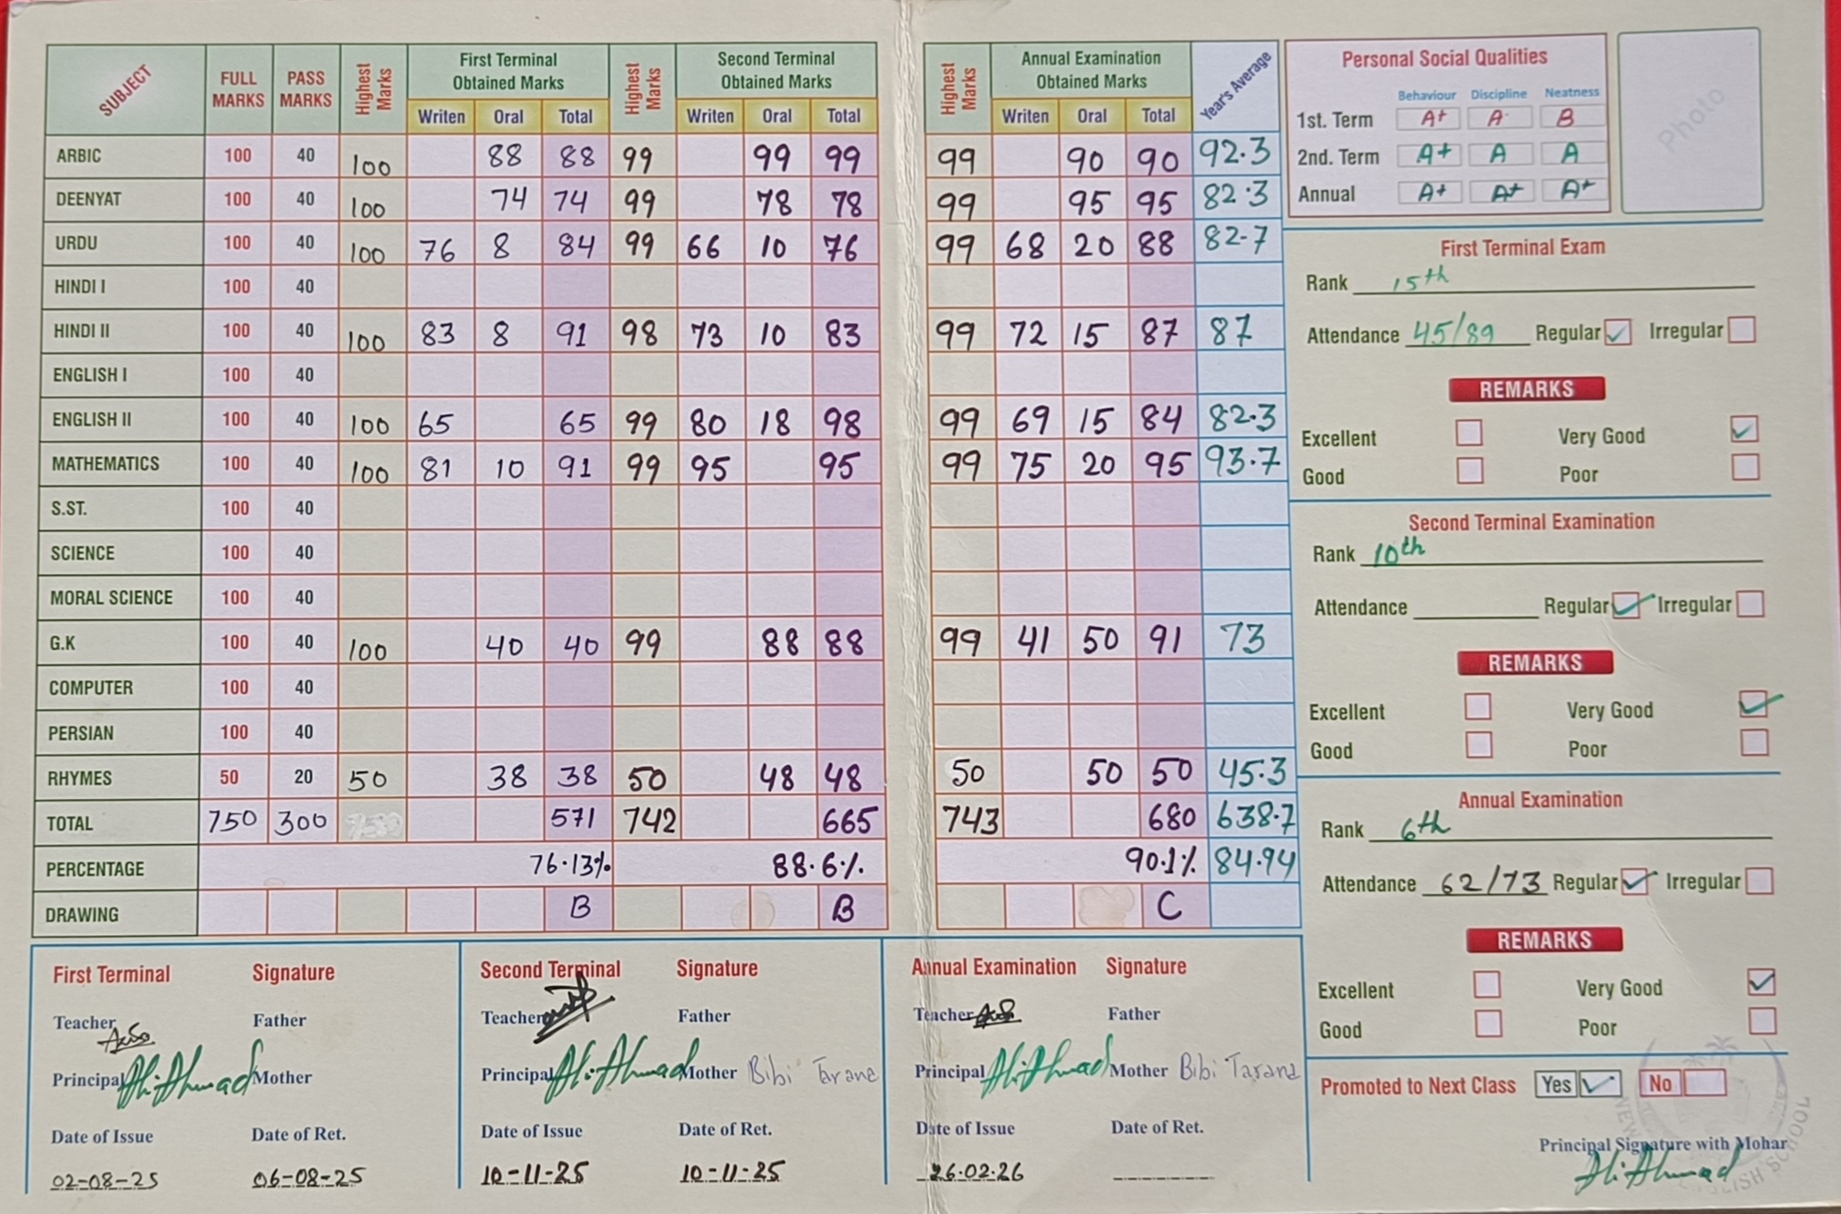 SUBJECT FULL MARKS PASS MARKS Highest Marks First Terminal Obtained Marks Highest Marks Second Terminal Obtained Marks Highest Marks Annual Examination Obtained Marks Year's Average
Writen Oral Total Writen Oral Total Writen Oral Total
ARBIC 100 40 100 88 88 99 99 99 99 90 90 92.3
DEENYAT 100 40 100 74 74 99 78 78 99 95 95 82.3
URDU 100 40 100 76 8 84 99 66 10 76 99 68 20 88 82.7
HINDI I 100 40
HINDI II 100 40 100 83 8 91 98 73 10 83 99 72 15 87 87
ENGLISH I 100 40
ENGLISH II 100 40 100 65 65 99 80 18 98 99 69 15 84 82.3
MATHEMATICS 100 40 100 81 10 91 99 95 95 99 75 20 95 93.7
S.ST. 100 40
SCIENCE 100 40
MORAL SCIENCE 100 40
G.K 100 40 100 40 40 99 88 88 99 41 50 91 73
COMPUTER 100 40
PERSIAN 100 40
RHYMES 50 20 50 38 38 50 48 48 50 50 50 45.3
TOTAL 750 300 571 742 665 743 680 638.7
PERCENTAGE 76.13% 88.6% 90.1% 84.94
DRAWING B B C
First Terminal Signature
Teacher Father
Principal Ali Ahmad Mother
Date of Issue Date of Ret.
02-08-25 06-08-25
Second Terminal Signature
Teacher Father
Principal Ali Ahmad Mother Bibi Tarana
Date of Issue Date of Ret.
10-11-25 10-11-25
Annual Examination Signature
Teacher Father
Principal Ali Ahmad Mother Bibi Tarana
Date of Issue Date of Ret.
26.02.26
Personal Social Qualities
Behaviour Discipline Neatness
1st. Term A+ A B
2nd. Term A+ A A
Annual A+ A+ A+
Photo
First Terminal Exam
Rank 15th
Attendance 45/89 Regular Irregular
REMARKS
Excellent Very Good
Good Poor
Second Terminal Examination
Rank 10th
Attendance Regular Irregular
REMARKS
Excellent Very Good
Good Poor
Annual Examination
Rank 6th
Attendance 62/73 Regular Irregular
REMARKS
Excellent Very Good
Good Poor
Promoted to Next Class Yes No
Principal Signature with Mohar
Ali Ahmad
NEW
SCHOOL